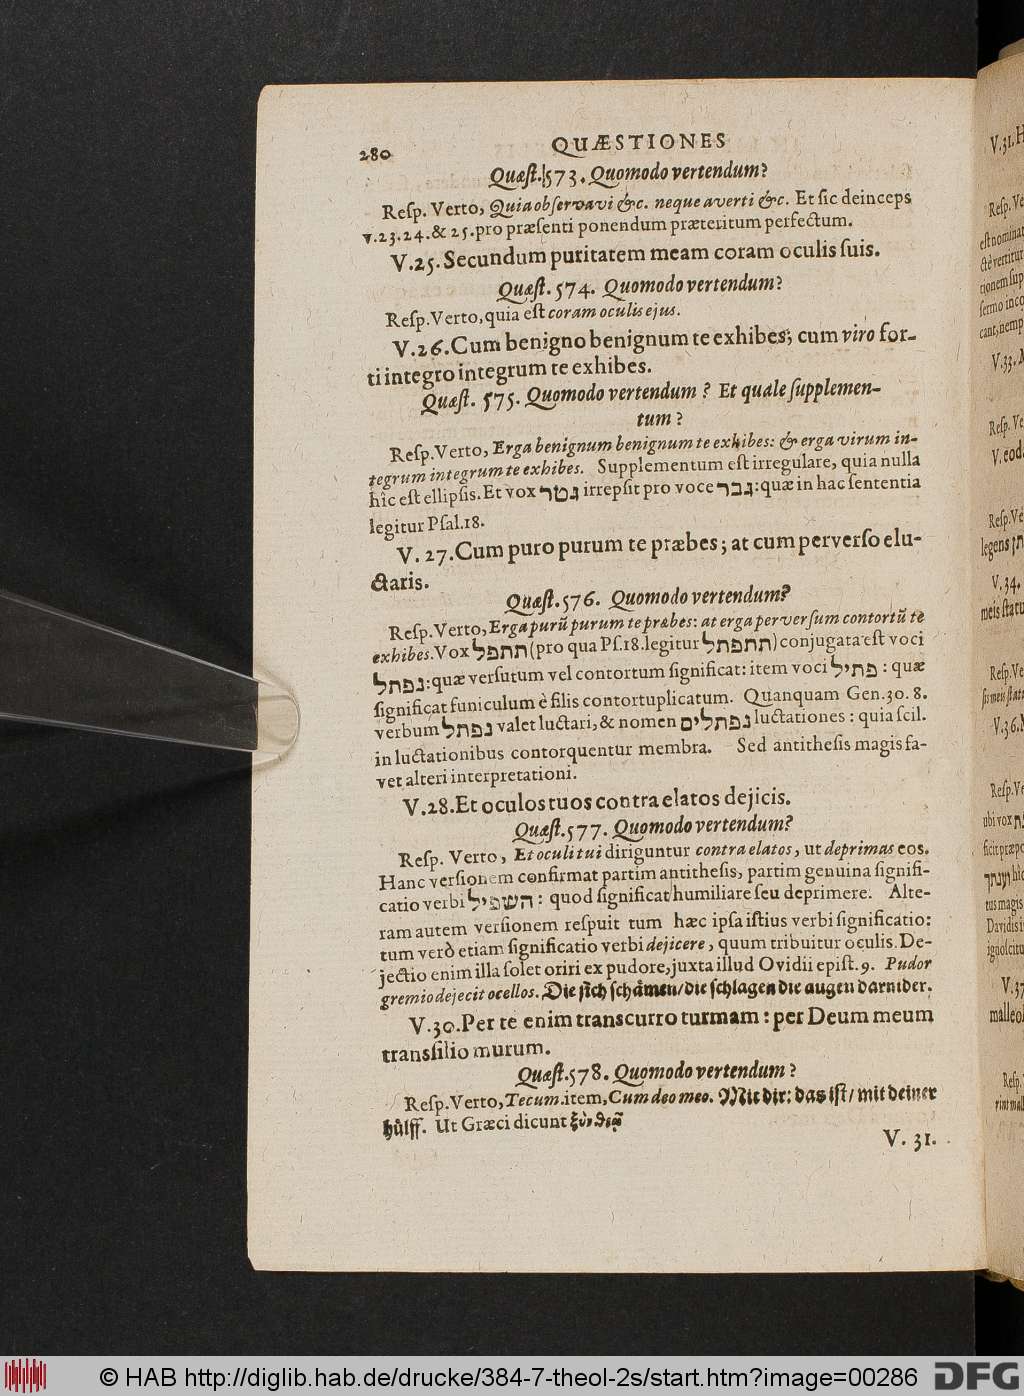 280 QUÆSTIONES
Quæſt. 573. Quomodo vertendum?
Reſp. Verto, Quia obſervavi &c. neque averti &c. Et ſic deinceps
v. 23. 24. & 25. pro præſenti ponendum præteritum perfectum.
V. 25. Secundum puritatem meam coram oculis ſuis.
Quæſt. 574. Quomodo vertendum?
Reſp. Verto, quia eſt coram oculis ejus.
V. 26. Cum benigno benignum te exhibes; cum viro for-
ti integro integrum te exhibes.
Quæſt. 575. Quomodo vertendum? Et quale ſupplemen-
tum?
Reſp. Verto, Erga benignum benignum te exhibes: & erga virum in-
tegrum integrum te exhibes. Supplementum eſt irregulare, quia nulla
hîc eſt ellipſis. Et vox גטר irrepſit pro voce גבר: quæ in hac ſententia
legitur Pſal. 18.
V. 27. Cum puro purum te præbes; at cum perverſo elu-
ctaris.
Quæſt. 576. Quomodo vertendum?
Reſp. Verto, Erga purũ purum te præbes: at erga perverſum contortũ te
exhibes. Vox תתפל (pro qua Pſ. 18. legitur תתפתל) conjugata eſt voci
נפתל: quæ verſutum vel contortum ſignificat: item voci פתיל: quæ
ſignificat funiculum è filis contortuplicatum. Quanquam Gen. 30. 8.
verbum נפתל valet luctari, & nomen נפתלים luctationes: quia ſcil.
in luctationibus contorquentur membra. Sed antitheſis magis fa-
vet alteri interpretationi.
V. 28. Et oculos tuos contra elatos dejicis.
Quæſt. 577. Quomodo vertendum?
Reſp. Verto, Et oculi tui diriguntur contra elatos, ut deprimas eos.
Hanc verſionem confirmat partim antitheſis, partim genuina ſignifi-
catio verbi השפיל: quod ſignificat humiliare ſeu deprimere. Alte-
ram autem verſionem reſpuit tum hæc ipſa iſtius verbi ſignificatio:
tum verò etiam ſignificatio verbi dejicere, quum tribuitur oculis. De-
jectio enim illa ſolet oriri ex pudore, juxta illud Ovidii epiſt. 9. Pudor
gremio dejecit ocellos. Die ſich ſchåmen/ die ſchlagen die augen darnider.
V. 30. Per te enim transcurro turmam: per Deum meum
transſilio murum.
Quæſt. 578. Quomodo vertendum?
Reſp. Verto, Tecum. item, Cum deo meo. Mit dir: das iſt/ mit deiner
hůlff. Ut Græci dicunt ξὺν θεῷ
V. 31.
V. 31. H
Reſp. Ve
eſt nominat
ctè vertitur
tionem ſup
ſermo inco
cant, nemp
V. 33.
Reſp. Ve
V. eod
Reſp. Ve
legens
V. 34.
meis ſtatu
Reſp. Ve
ſis meis ſtat
V. 36.
Reſp. Ve
ubi vox
ficit præpo
tus magis
Davidis i
ignoſcitu
V. 37
malleol
Reſp.
© HAB http://diglib.hab.de/drucke/384-7-theol-2s/start.htm?image=00286 DFG